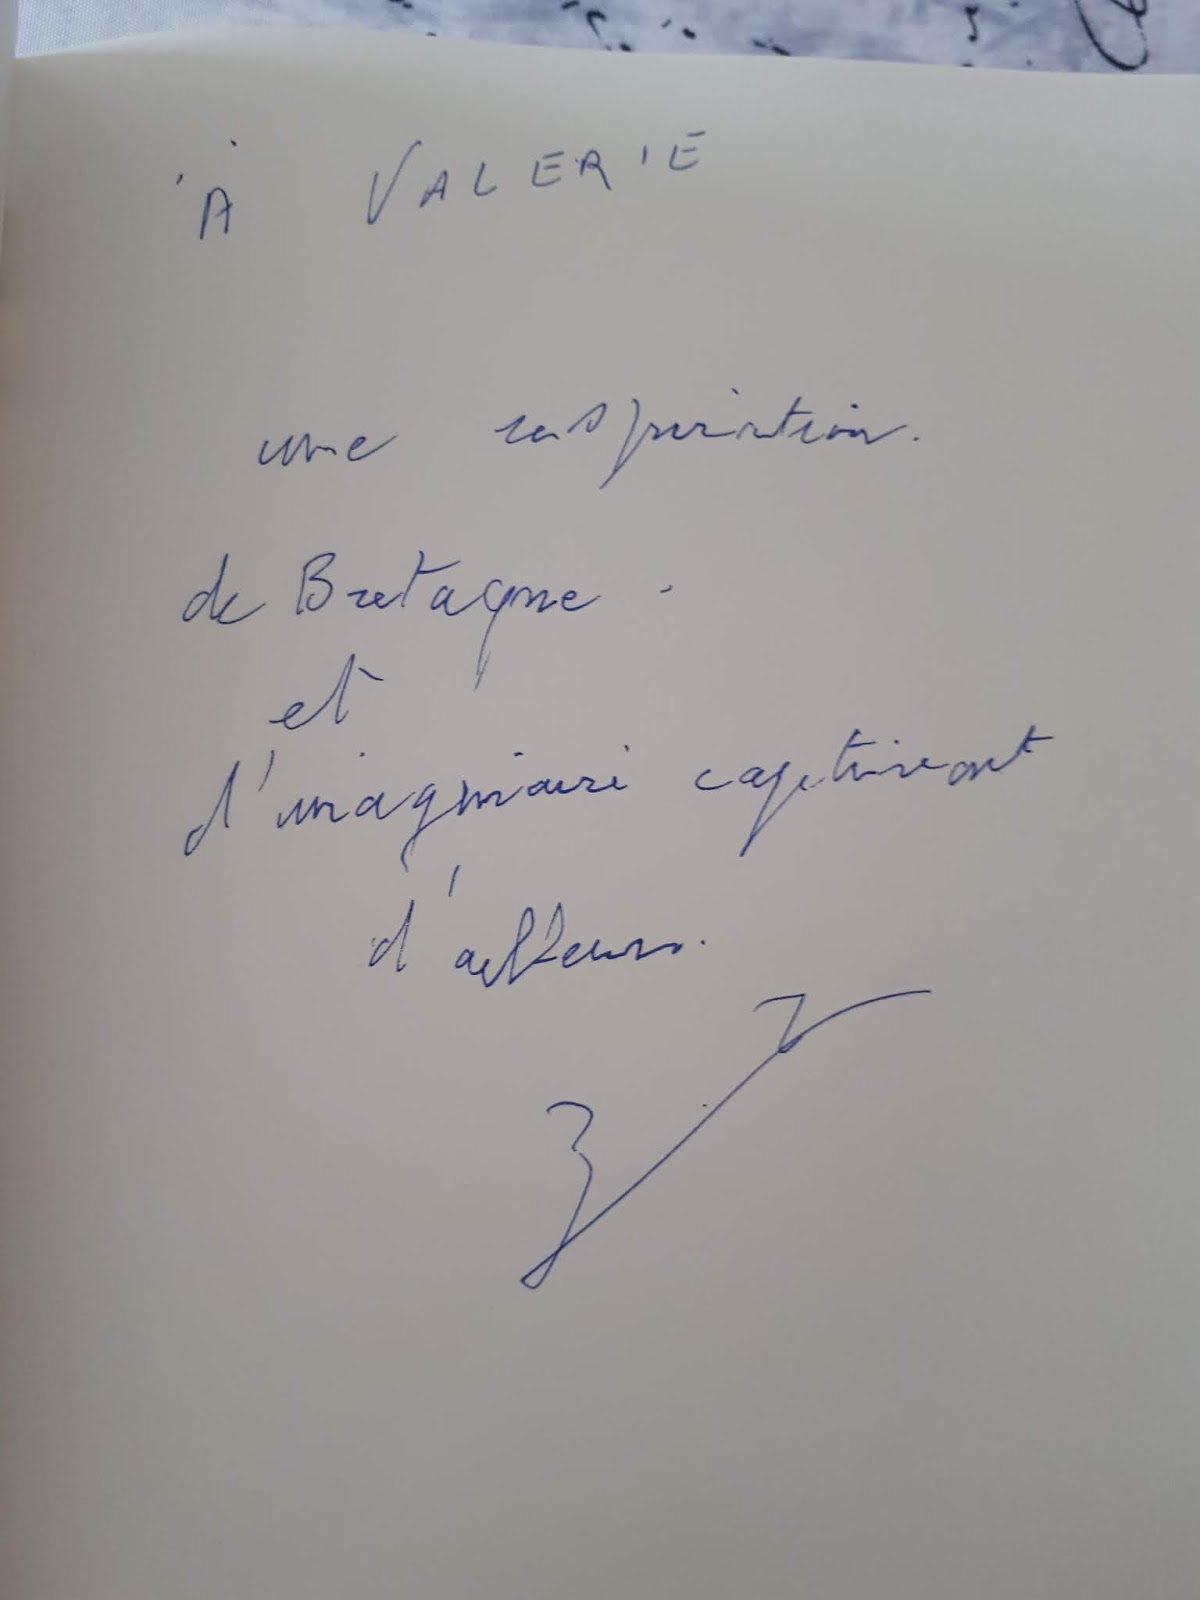 À VALERIE
une inspiration.
de Bretagne.
et
d'imaginaire captivant
d'ailleurs.